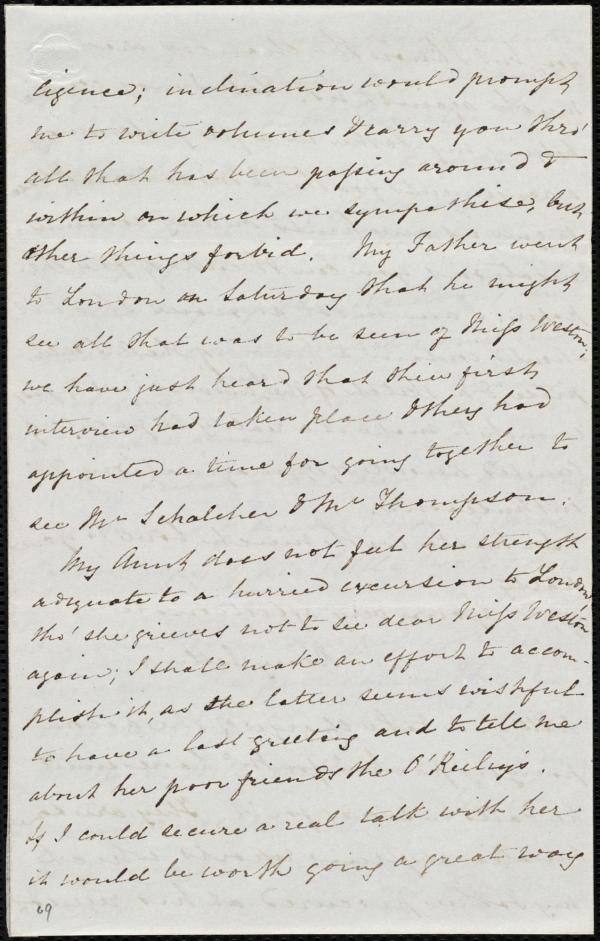 ligence; inclination would prompt
me to write volumes & carry you thro'
all that has been passing around &
within on which we sympathise, but
other things forbid. My Father went
to London on Saturday that he might
see all that was to be seen of Miss Weston;
we have just heard that their first
interview had taken place & they had
appointed a time for going together to
see Mr Schalcher & Mr Thompson.
My Aunt does not feel her strength
adequate to a hurried excursion to London
tho' she grieves not to see dear Miss Weston
again; I shall make an effort to accom-
plish it, as the latter seems wishful
to have a last greeting and to tell me
about her poor friends the O'Reily's.
If I could secure a real talk with her
it would be worth going a great way
69